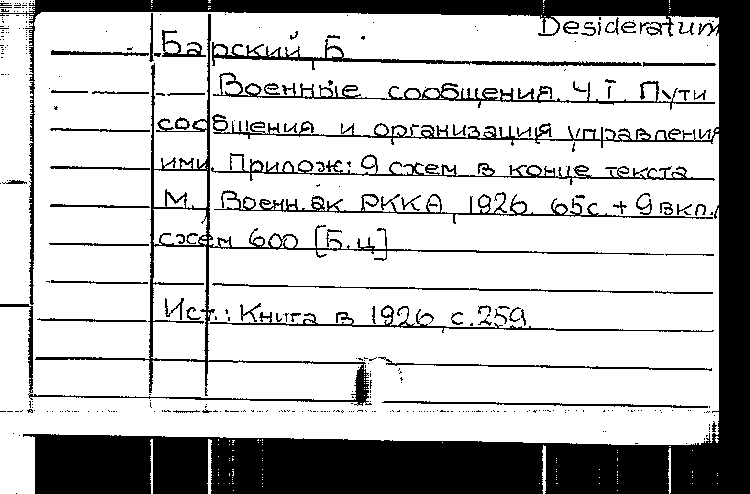 Desideratum
Барский, Б.
Военные сообщения. Ч. I. Пути
сообщения и организация управления
ими. Прилож: 9 схем в конце текста
М., Военн. ак РККА, 1926. 65 с. + 9 вкл.
схем 600 [Б.ц]
Ист.: Книга в 1926, с. 259.